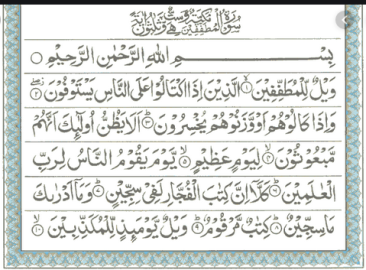 سُوْرَةُ الْمُطَفِّفِيْنَ
بِسْمِ اللّٰهِ الرَّحْمٰنِ الرَّحِيْمِ ۝
وَيْلٌ لِّلْمُطَفِّفِيْنَ ۝۱ الَّذِيْنَ اِذَا اكْتَالُوْا عَلَى النَّاسِ يَسْتَوْفُوْنَ ۝۲
وَاِذَا كَالُوْهُمْ اَوْ وَّزَنُوْهُمْ يُخْسِرُوْنَ ۝۳ اَلَا يَظُنُّ اُولٰٓئِكَ اَنَّهُمْ
مَّبْعُوْثُوْنَ ۝۴ لِيَوْمٍ عَظِيْمٍ ۝۵ يَّوْمَ يَقُوْمُ النَّاسُ لِرَبِّ
الْعٰلَمِيْنَ ۝۶ كَلَّاۤ اِنَّ كِتٰبَ الْفُجَّارِ لَفِيْ سِجِّيْنٍ ۝۷ وَمَاۤ اَدْرٰىكَ
مَا سِجِّيْنٌ ۝۸ كِتٰبٌ مَّرْقُوْمٌ ۝۹ وَيْلٌ يَّوْمَئِذٍ لِّلْمُكَذِّبِيْنَ ۝۱۰